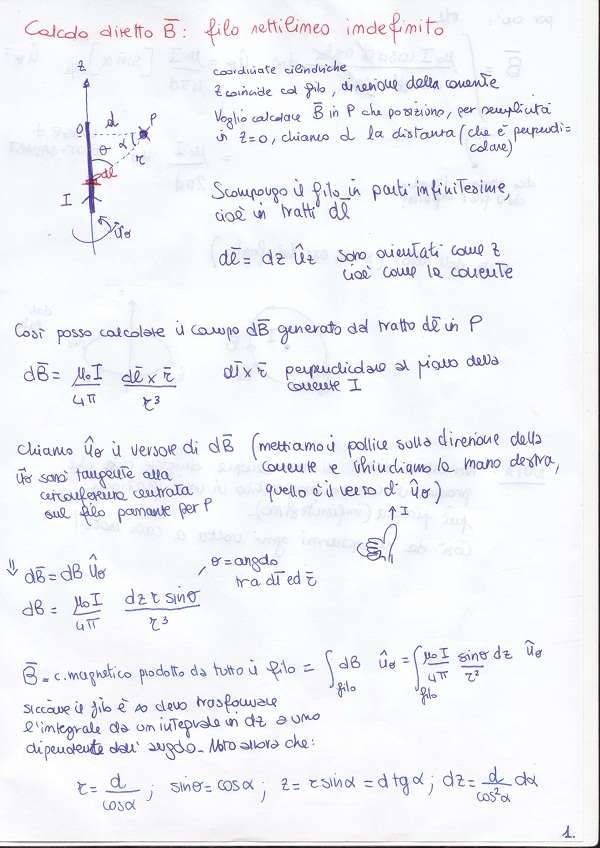 Calcolo diretto B̄: filo rettilineo indefinito
z
coordinate cilindriche
z coincide col filo, direzione della corrente
Voglio calcolare B̄ in P che posiziono, per semplicità
in z=0, chiamo d la distanza (che è perpendi-
colare)
O d P
α
θ r
dl
I
ûθ
Scompongo il filo in parti infinitesime,
cioè in tratti dl̄
dl̄ = dz ûz sono orientati come z
cioè come la corrente
Così posso calcolare il campo dB̄ generato dal tratto dl̄ in P
dB̄ = μ₀I/4π dl̄ × r̄/r³ dl̄ × r̄ perpendicolare al piano della
corrente I
Chiamo ûθ il versore di dB̄ (mettiamo il pollice sulla direzione della
corrente e chiudiamo la mano destra,
quello è il verso di ûθ)
ûθ sarà tangente alla
circonferenza centrata
sul filo passante per P
↑ I
⇓ dB̄ = dB ûθ
θ = angolo
tra dl̄ ed r̄
dB = μ₀I/4π dz r sinθ/r³
B̄ = c. magnetico prodotto da tutto il filo = ∫filo dB ûθ = ∫filo μ₀I/4π sinθ dz/r² ûθ
siccome il filo è ∞ devo trasformare
l'integrale da un integrale in dz a uno
dipendente dall'angolo. Noto allora che:
r = d/cosα ; sinθ = cosα ; z = r sinα = d tgα ; dz = d/cos²α dα
1.